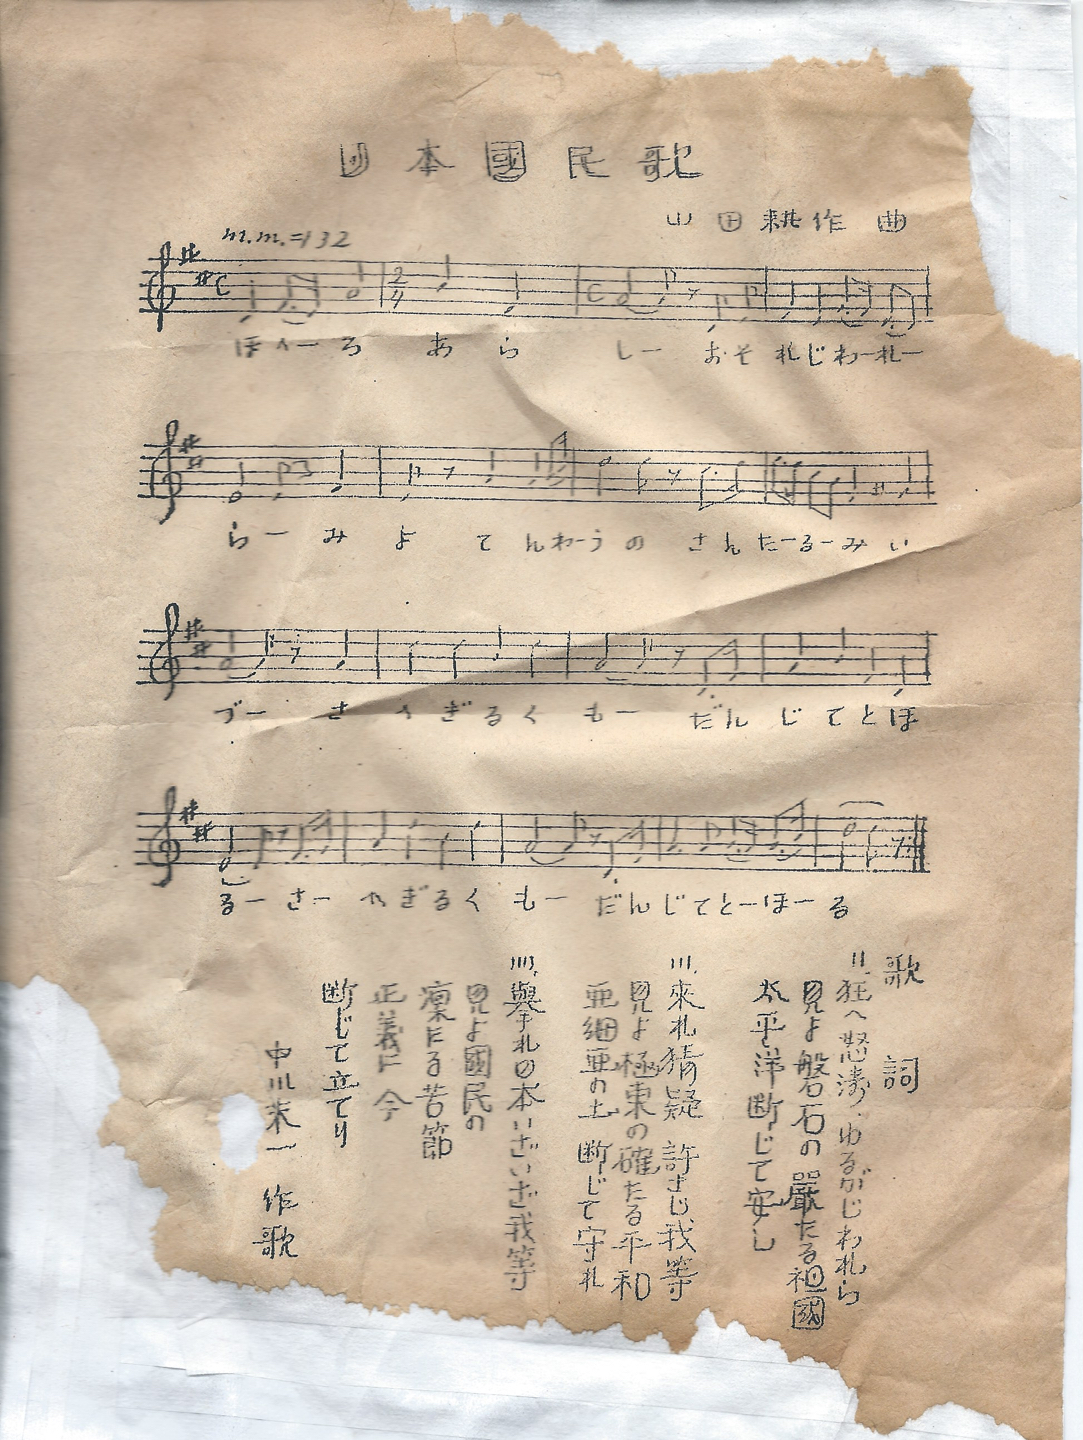 日本國民歌
山田耕作 曲
m.m.=132
ほへーろ あら しー おそれじわーれー
らー みよ てんわーうの さんたーるーみい
づー さやぎるくもー だんじてとほ
るー さーやぎるくもー だんじてとーほーる
歌詞
II.狂へ怒濤、ゆるがじわれら
見よ磐石の嚴たる祖國
太平洋断じて安し
III.來れ猜疑 許さじ我等
見よ極東の確たる平和
亜細亜の土 断じて守れ
IIII.擧れ日本いざいざ我等
見よ國民の
凛たる苦節
正義に今
断じて立てり
中川末一 作歌